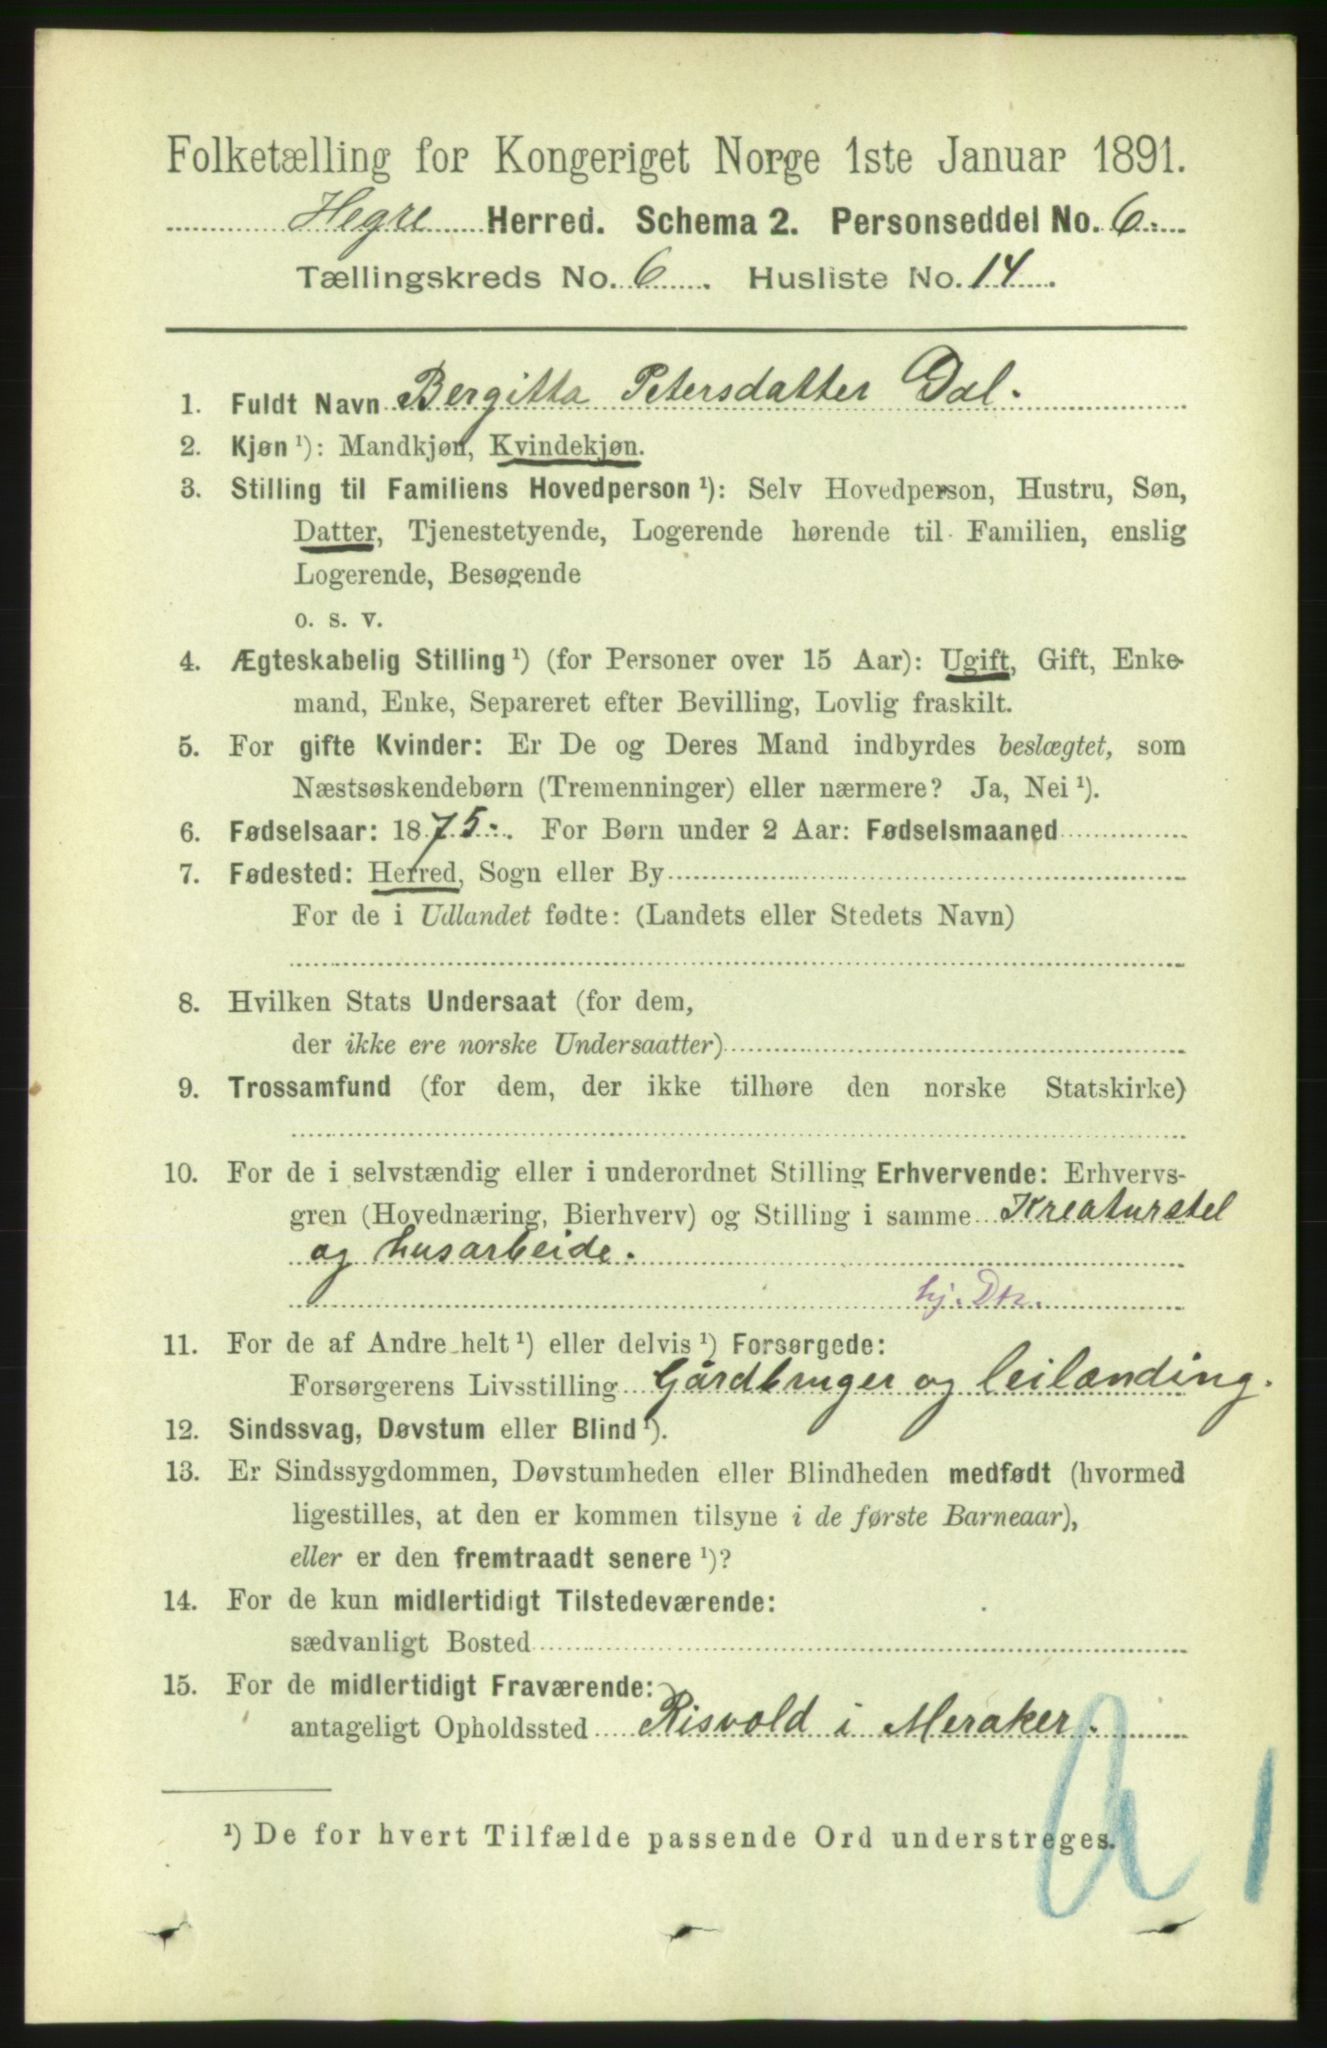 Folketælling for Kongeriget Norge 1ste Januar 1891.
Hegre Herred. Schema 2. Personseddel No. 6.
Tællingskreds No. 6. Husliste No. 14.
1. Fuldt Navn Bergitta Petersdatter Dal.
2. Kjøn ¹): Mandkjøn, Kvindekjøn.
3. Stilling til Familiens Hovedperson ¹): Selv Hovedperson, Hustru, Søn,
Datter, Tjenestetyende, Logerende hørende til Familien, enslig
Logerende, Besøgende
o. s. v.
4. Ægteskabelig Stilling ¹) (for Personer over 15 Aar): Ugift, Gift, Enke-
mand, Enke, Separeret efter Bevilling, Lovlig fraskilt.
5. For gifte Kvinder: Er De og Deres Mand indbyrdes beslægtet, som
Næstsøskendebørn (Tremenninger) eller nærmere? Ja, Nei ¹).
6. Fødselsaar: 1875. For Børn under 2 Aar: Fødselsmaaned
7. Fødested: Herred, Sogn eller By
For de i Udlandet fødte: (Landets eller Stedets Navn)
8. Hvilken Stats Undersaat (for dem,
der ikke ere norske Undersaatter)
9. Trossamfund (for dem, der ikke tilhøre den norske Statskirke)
10. For de i selvstændig eller i underordnet Stilling Erhvervende: Erhvervs-
gren (Hovednæring, Bierhverv) og Stilling i samme Kreaturstel
og husarbeide.
hj. Dtr.
11. For de af Andre helt ¹) eller delvis ¹) Forsørgede:
Forsørgerens Livsstilling Gårdbruger og leilænding.
12. Sindssvag, Døvstum eller Blind ¹).
13. Er Sindssygdommen, Døvstumheden eller Blindheden medfødt (hvormed
ligestilles, at den er kommen tilsyne i de første Barneaar),
eller er den fremtraadt senere ¹)?
14. For de kun midlertidigt Tilstedeværende:
sædvanligt Bosted
15. For de midlertidigt Fraværende:
antageligt Opholdssted Risvold i Meraker.
¹) De for hvert Tilfælde passende Ord understreges.
a 1